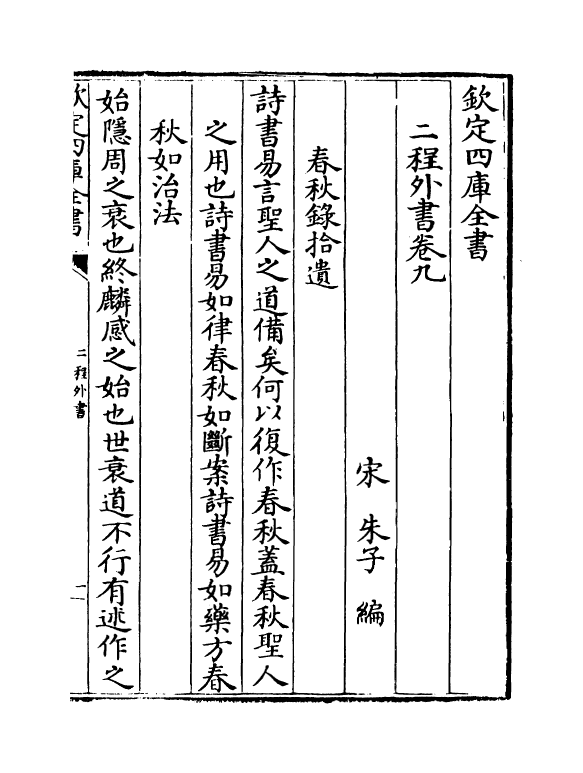 欽定四庫全書
二程外書卷九
宋 朱子 編
春秋錄拾遺
詩書易言聖人之道備矣何以復作春秋蓋春秋聖人
之用也詩書易如律春秋如斷案詩書易如藥方春
秋如治法
始隱周之衰也終麟感之始也世衰道不行有述作之
欽定四庫全書
二程外書